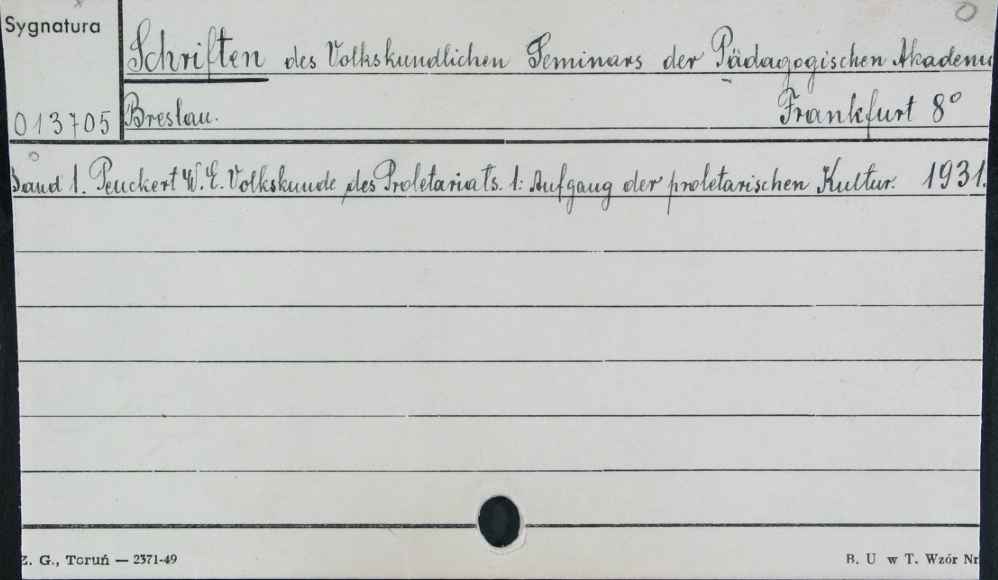 Sygnatura
Schriften des Volkskundlichen Seminars der Pädagogischen Akademi
013705 Breslau. Frankfurt 8°
Band 1. Peuckert W. E. Volkskunde des Proletariats. 1: Aufgang der proletarischen Kultur. 1931.
Z. G., Toruń — 2371-49 B. U w T. Wzór Nr